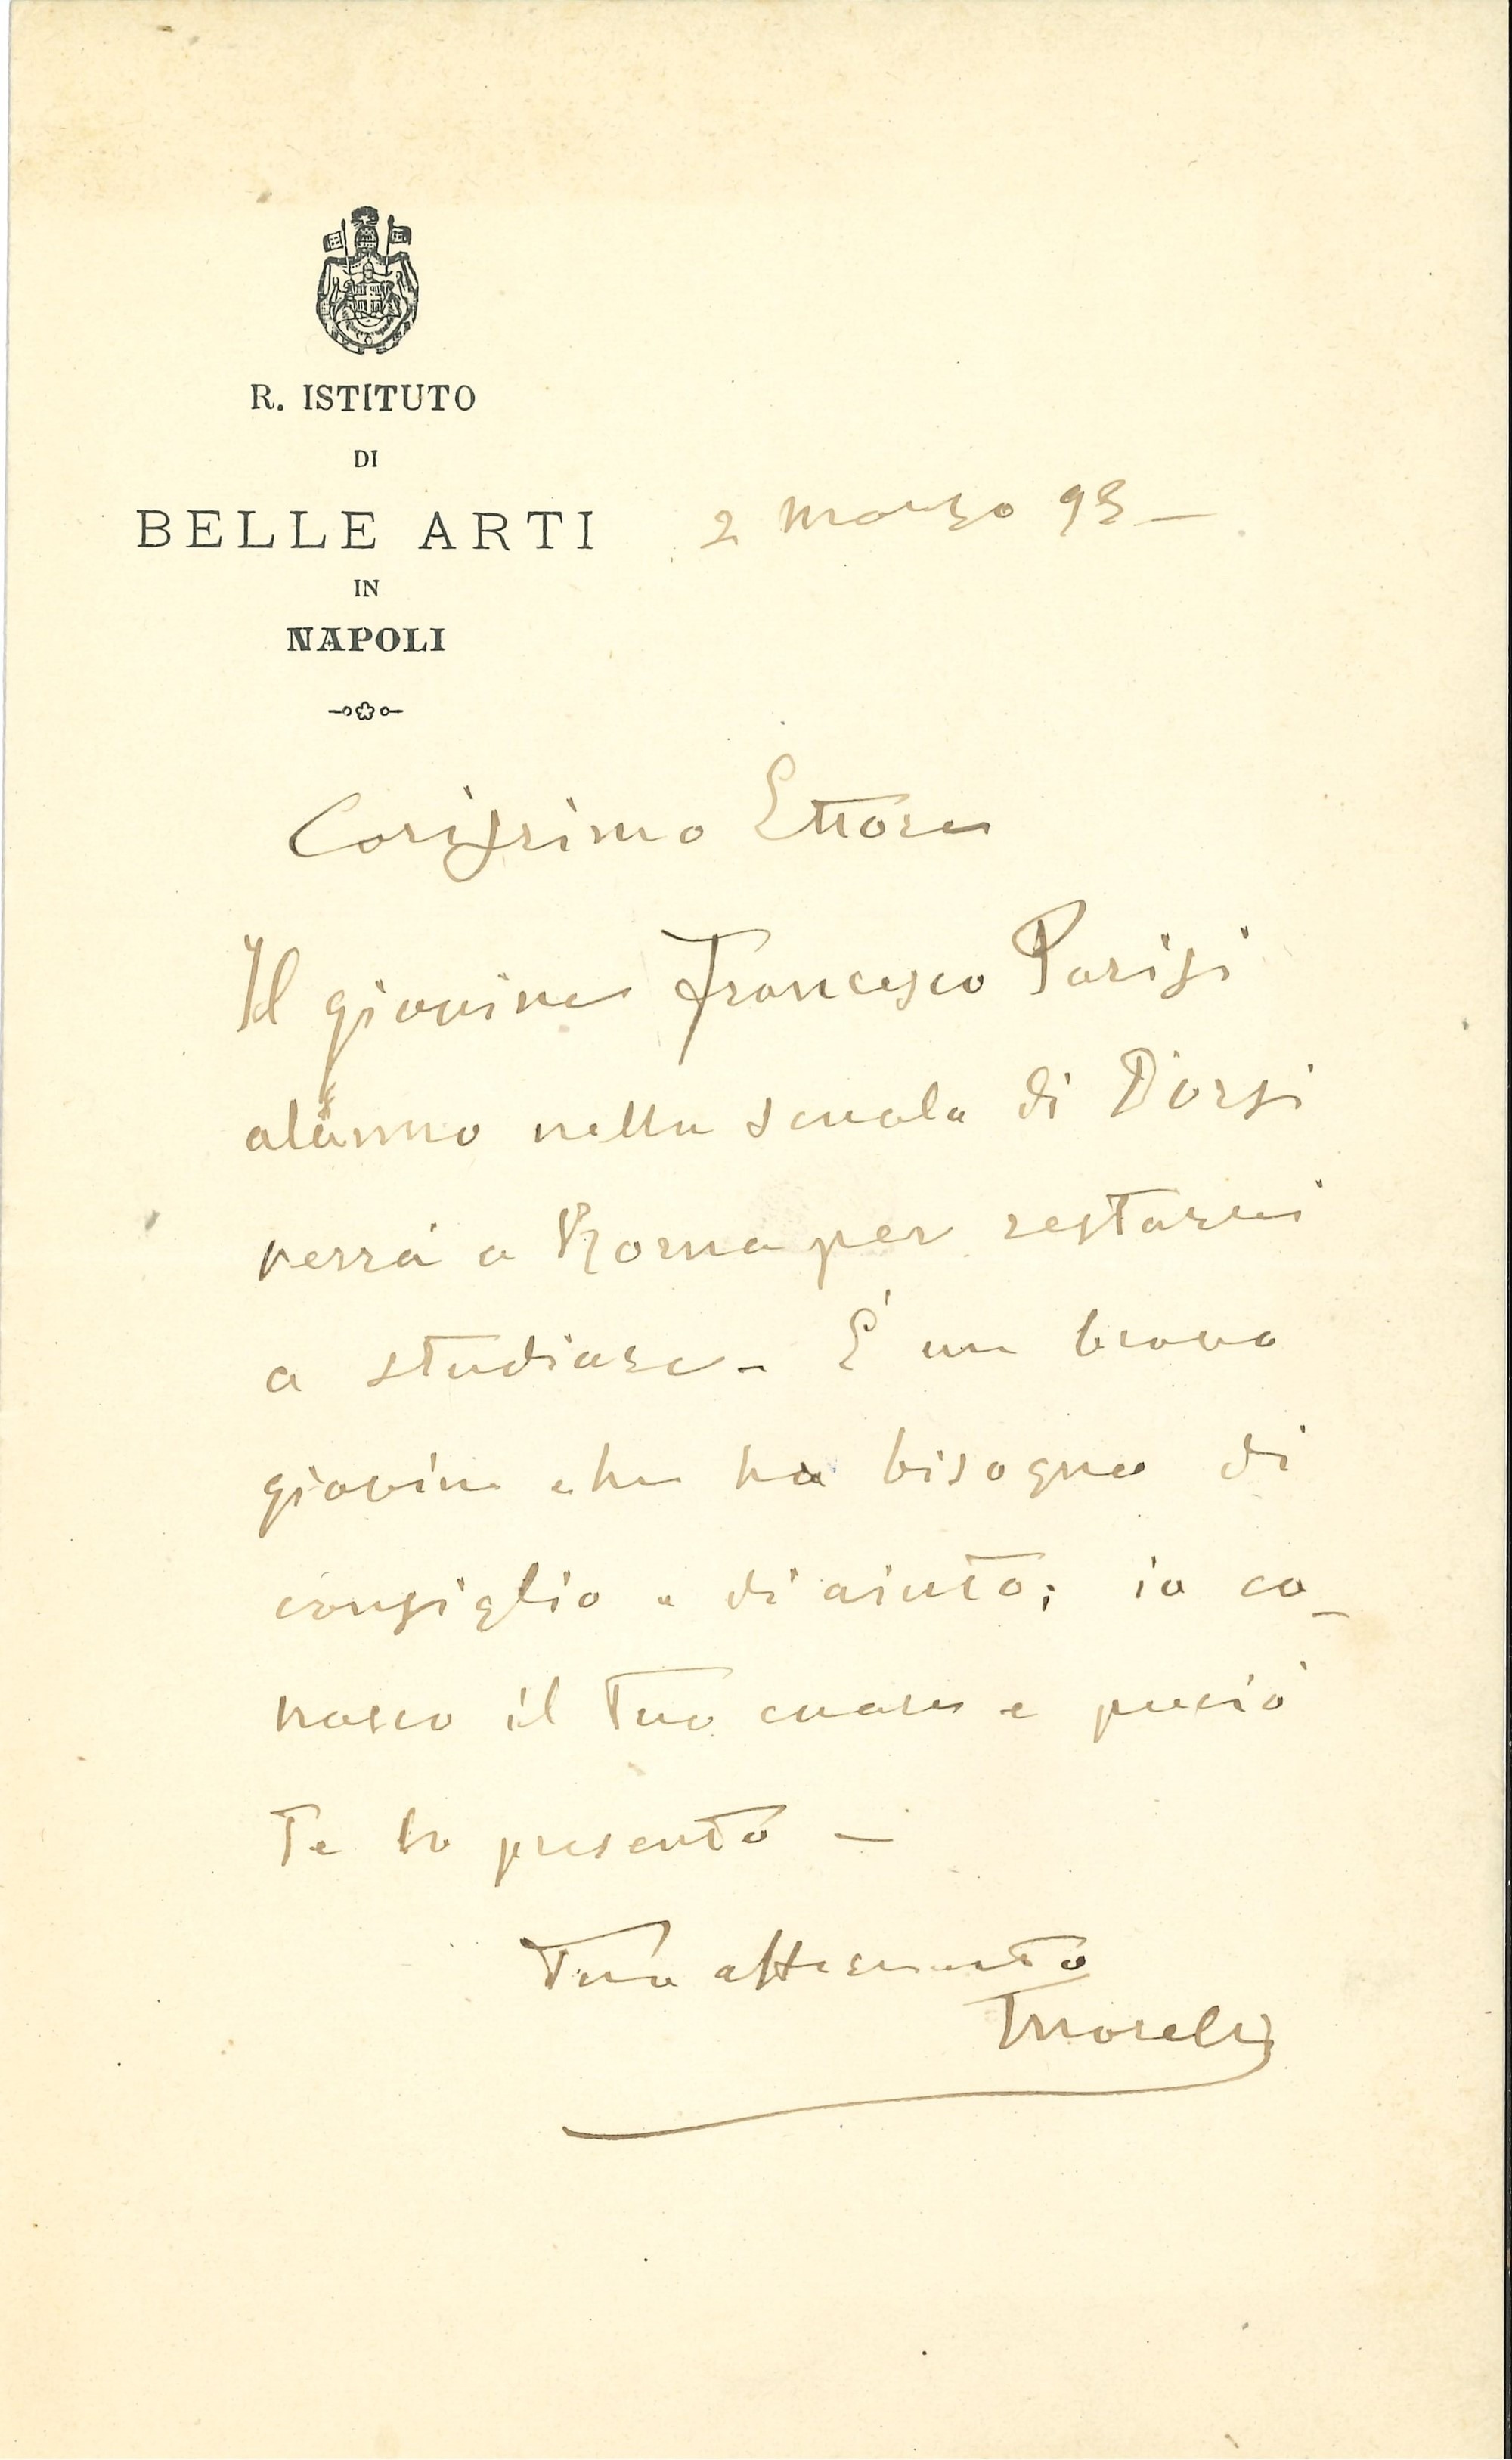 R. ISTITUTO
DI
BELLE ARTI
IN
NAPOLI
2 marzo 93 –
Carissimo Ettore
Il giovine Francesco Parisi
alunno nella scuola di D'Orsi
verrà a Roma per restarci
a studiare – È un bravo
giovine che ha bisogno di
consiglio e di aiuto; io co-
nosco il tuo cuore e perciò
te lo presento –
Tuo affezionato
Morelli